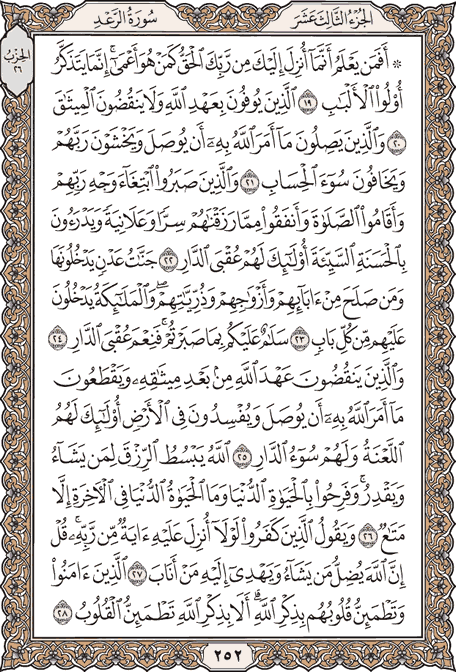 سُورَةُ الرَّعْدِ
الجُزْءُ الثَّالِثَ عَشَرَ
الحِزْبُ
٢٦
۞ أَفَمَن يَعْلَمُ أَنَّمَآ أُنزِلَ إِلَيْكَ مِن رَّبِّكَ ٱلْحَقُّ كَمَنْ هُوَ أَعْمَىٰٓ ۚ إِنَّمَا يَتَذَكَّرُ
أُو۟لُوا۟ ٱلْأَلْبَٰبِ ١٩ ٱلَّذِينَ يُوفُونَ بِعَهْدِ ٱللَّهِ وَلَا يَنقُضُونَ ٱلْمِيثَٰقَ
٢٠ وَٱلَّذِينَ يَصِلُونَ مَآ أَمَرَ ٱللَّهُ بِهِۦٓ أَن يُوصَلَ وَيَخْشَوْنَ رَبَّهُمْ
وَيَخَافُونَ سُوٓءَ ٱلْحِسَابِ ٢١ وَٱلَّذِينَ صَبَرُوا۟ ٱبْتِغَآءَ وَجْهِ رَبِّهِمْ
وَأَقَامُوا۟ ٱلصَّلَوٰةَ وَأَنفَقُوا۟ مِمَّا رَزَقْنَٰهُمْ سِرًّا وَعَلَانِيَةً وَيَدْرَءُونَ
بِٱلْحَسَنَةِ ٱلسَّيِّئَةَ أُو۟لَٰٓئِكَ لَهُمْ عُقْبَى ٱلدَّارِ ٢٢ جَنَّٰتُ عَدْنٍ يَدْخُلُونَهَا
وَمَن صَلَحَ مِنْ ءَابَآئِهِمْ وَأَزْوَٰجِهِمْ وَذُرِّيَّٰتِهِمْ ۖ وَٱلْمَلَٰٓئِكَةُ يَدْخُلُونَ
عَلَيْهِم مِّن كُلِّ بَابٍ ٢٣ سَلَٰمٌ عَلَيْكُم بِمَا صَبَرْتُمْ ۚ فَنِعْمَ عُقْبَى ٱلدَّارِ ٢٤
وَٱلَّذِينَ يَنقُضُونَ عَهْدَ ٱللَّهِ مِنۢ بَعْدِ مِيثَٰقِهِۦ وَيَقْطَعُونَ
مَآ أَمَرَ ٱللَّهُ بِهِۦٓ أَن يُوصَلَ وَيُفْسِدُونَ فِى ٱلْأَرْضِ ۙ أُو۟لَٰٓئِكَ لَهُمُ
ٱللَّعْنَةُ وَلَهُمْ سُوٓءُ ٱلدَّارِ ٢٥ ٱللَّهُ يَبْسُطُ ٱلرِّزْقَ لِمَن يَشَآءُ
وَيَقْدِرُ ۚ وَفَرِحُوا۟ بِٱلْحَيَوٰةِ ٱلدُّنْيَا وَمَا ٱلْحَيَوٰةُ ٱلدُّنْيَا فِى ٱلْءَاخِرَةِ إِلَّا
مَتَٰعٌ ٢٦ وَيَقُولُ ٱلَّذِينَ كَفَرُوا۟ لَوْلَآ أُنزِلَ عَلَيْهِ ءَايَةٌ مِّن رَّبِّهِۦ ۗ قُلْ
إِنَّ ٱللَّهَ يُضِلُّ مَن يَشَآءُ وَيَهْدِىٓ إِلَيْهِ مَنْ أَنَابَ ٢٧ ٱلَّذِينَ ءَامَنُوا۟
وَتَطْمَئِنُّ قُلُوبُهُم بِذِكْرِ ٱللَّهِ ۗ أَلَا بِذِكْرِ ٱللَّهِ تَطْمَئِنُّ ٱلْقُلُوبُ ٢٨
٢٥٢